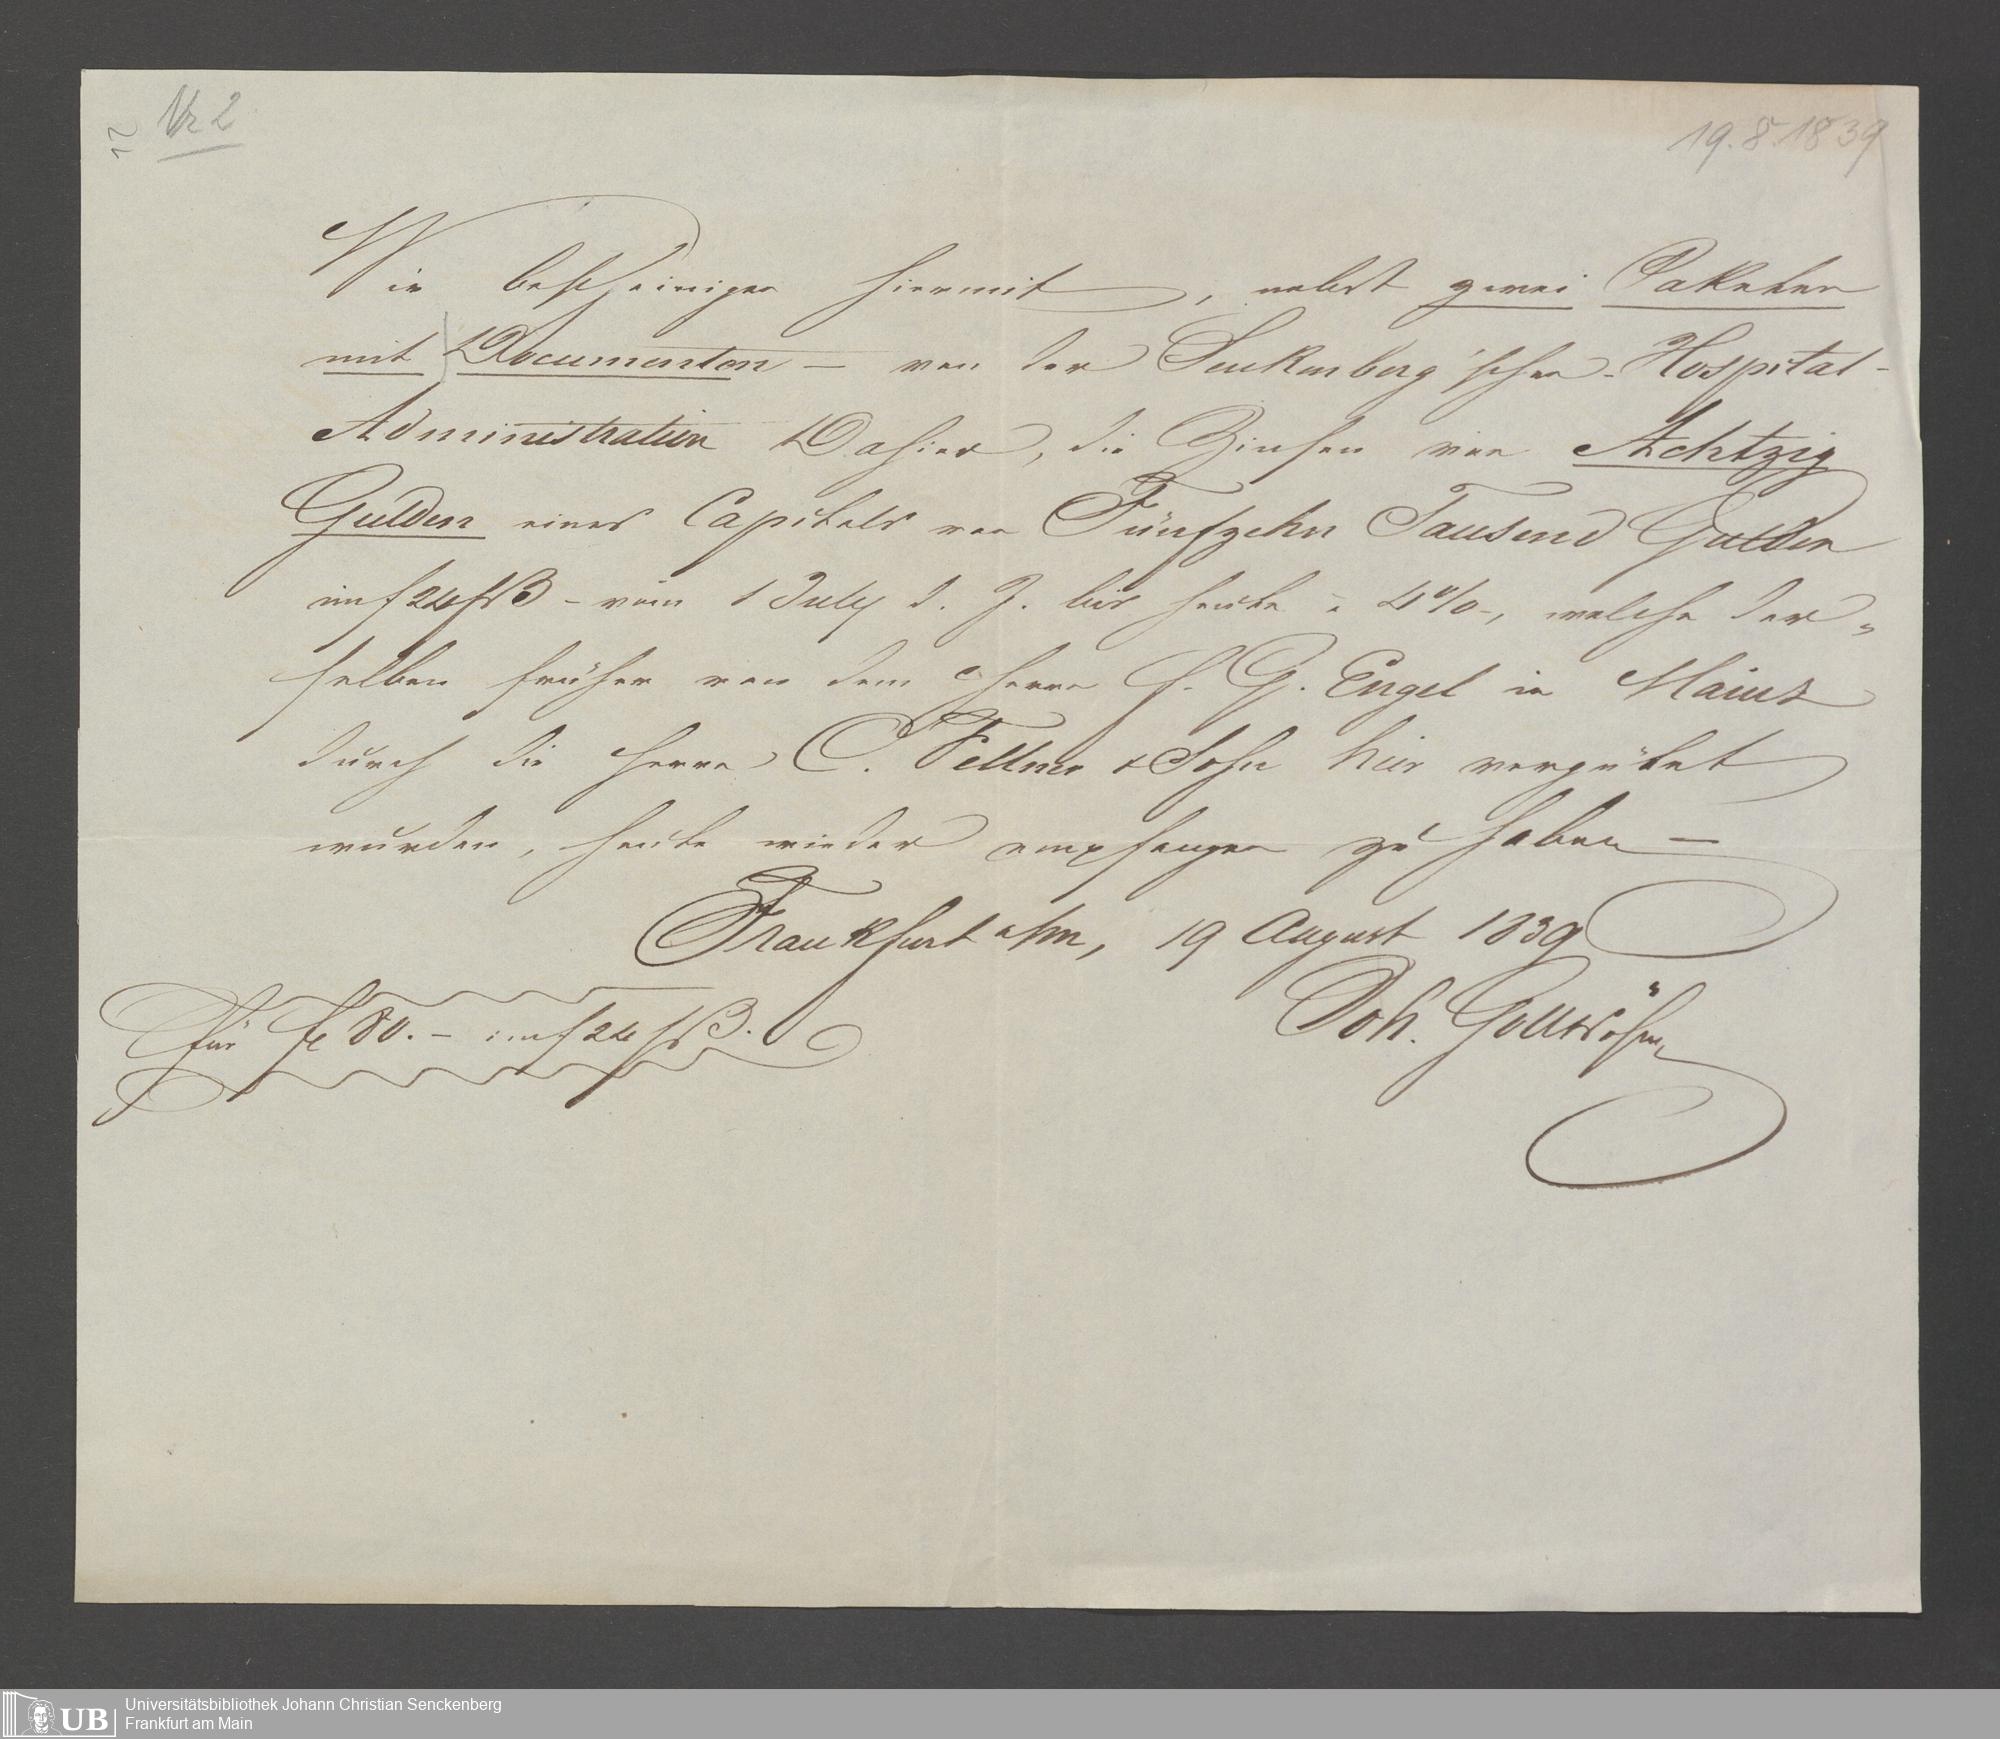 Nr 2
19.8.1839
Wir bescheinigen hiermit, nebst zwei Paketen
mit Documenten – von der Senkenberg'schen Hospital-
Administration dahier, die Zinsen von Achtzig
Gulden eines Capitals von Fünfzehn Tausend Gulden
im f 24 fß – vom 1 July d. J. bis heute à 4%, welche der„
selben früher von dem Herrn G. Engel in Mainz
durch die Herrn C. Fellner & Sohn hier vergütet
wurden, heute wieder empfangen zu haben –
Frankfurt a/m, 19 August 1839
Für f 80. – im f 24 fß.
Joh.
UB Universitätsbibliothek Johann Christian Senckenberg
Frankfurt am Main